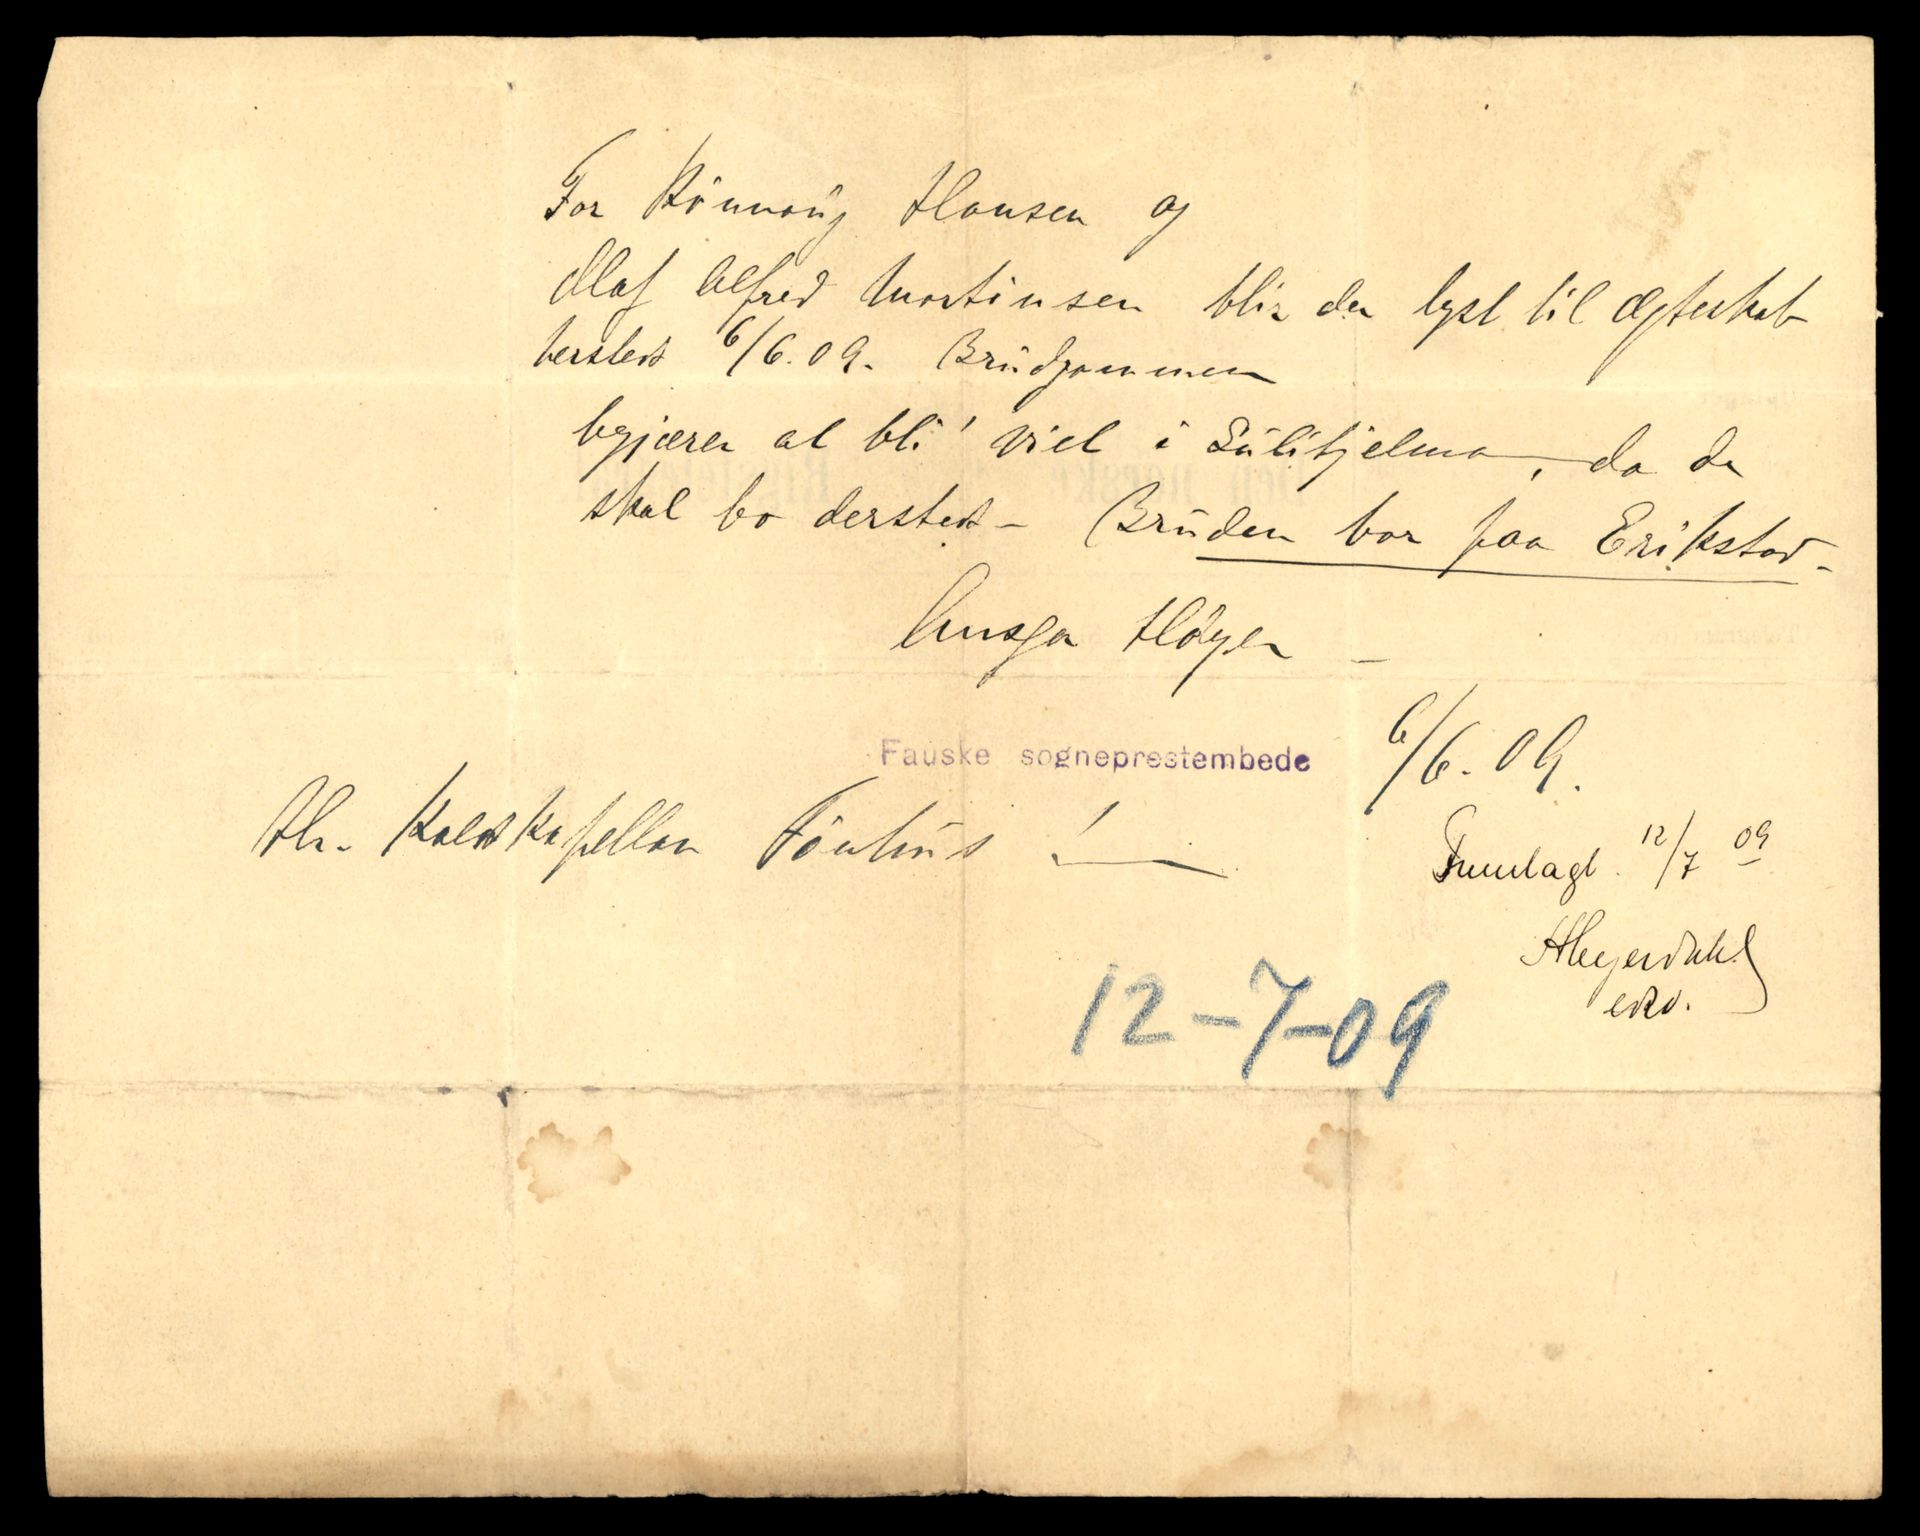 For Rönnaug Hansen og
Olaf Alfred Martinsen blir der lyst til ægteskab
hersteds 6/6.09. Brudgommen
begjærer at bli' viet i Sulitjelma, da de
skal bo dersteds – Bruden bor paa Erikstad –
Ansgar Höyer –
Fauske sogneprestembede 6/6.09.
Hr. Kaldskapellan Fönhus!
Fremlagt. 12/7 09
AHeyerdahl
12-7-09